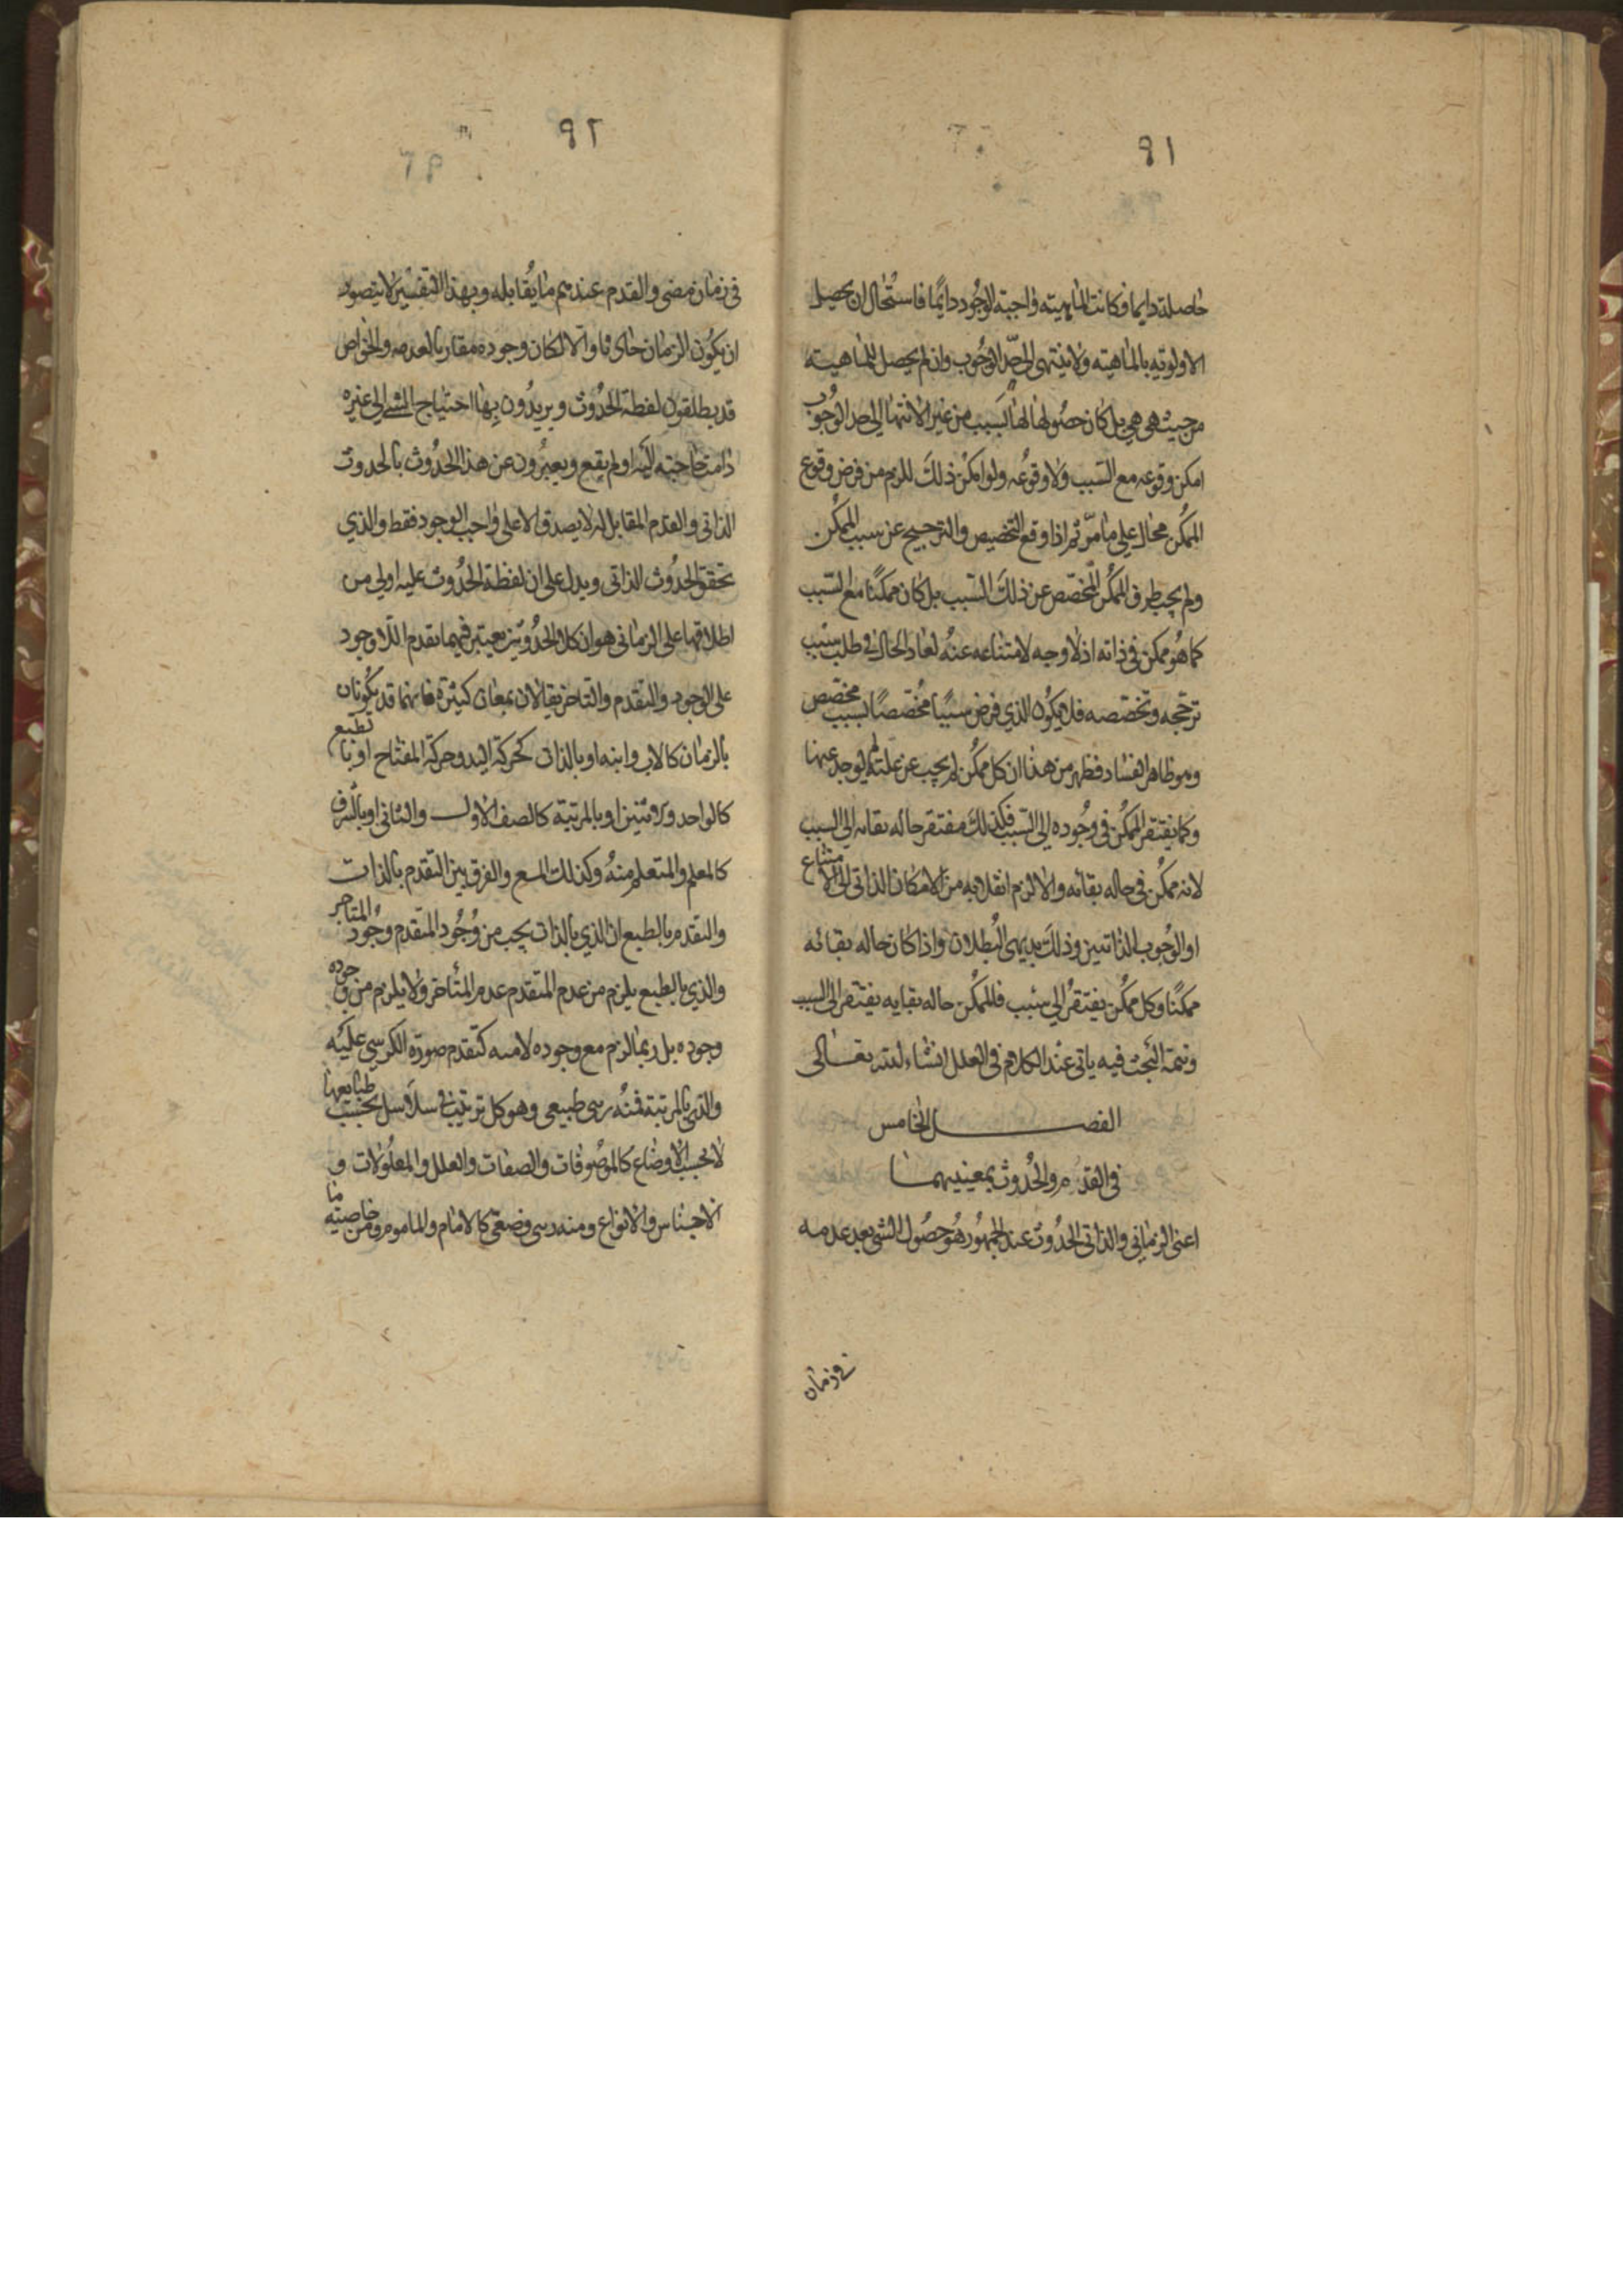 ٩١
حاصلة دايما فكانت الماهيته واجبة الوجود دايمًا فاستحال ان يحصل
الاولويه بالماهيته ولا ينتهى الى حدّ الوجوب وان لم يحصل للماهيته
من حيث هى هى بل كان حصولها لها بسبب من غير الانتها الى حد الوجوب
امكن وقوعه مع السبب ولا وقوعه ولو امكن ذلك للزم من فرض وقوع
الممكن محال على ما مرّ ثم اذا وقع التخصيص والترجيح عن سبب الممكن
ولم يجب طرف الممكن المخصّص عن ذلك السبب بل كان ممكنًا مع السبب
كما هو ممكن فى ذاته اذ لا وجه لامتناعه عنه لعاد الحال فى طلب سبب
ترجحه وتخصّصه فلا يكون الذي فرض سببًا مخصّصًا بسبب مخصّص
وهو ظاهر الفساد فظهر من هذا ان كل ممكن لم يجب عن علته لم يوجد عنها
وكما يفتقر الممكن فى وجوده الى السبب فكذلك مفتقر حاله بقايه الى السبب
لانه ممكن فى حاله بقائه والا لزم انقلابه من الامكان الذاتى الى الامتناع
او الوجوب الذاتيين وذلك بديهى البطلان واذا كان حاله بقائه
ممكنًا وكل ممكن يفتقر الي سبب فالممكن حاله بقايه يفتقر الى السبب
وتتمة البحث فيه ياتى عند الكلام فى العلل انشاء لله تعالى
الفصل الخامس
فى القدم والحدوث بمعنييهما
اعنى الزمانى والذاتى الحدوث عند الجمهور هو حصول الشى بعد عدمه
فى زمان
٩٢
فى زمان مضى والقدم عندهم ما يقابله وبهذا التفسير لا يتصور
ان يكون الزمان حادثا والا لكان وجوده مقارنا لعدمه والخواص
قد يطلقون لفظة الحدوث ويريدون بها احتياج الشي الى غيره
دامت حاجته اليه اولم يقع ويعبرون عن هذا الحدوث بالحدوث
الذاتى والقدم المقابل له لا يصدق الا على واجب الوجود فقط والذي
تحقق الحدوث الذاتى ويدل على ان لفظة الحدوث عليه اولى من
اطلاقها على الزمانى هو ان كلا الحدوثين يعتبر فيهما تقدم اللا وجود
على الوجود والتقدم والتاخر يقالان بمعان كثيرة فانهما قد يكونان
بالزمان كالاب وابنه او بالذات كحركة اليد وحركة المفتاح او بالطبع
كالواحد والاثنين او بالمرتبة كالصف الاول والثانى او بالشرف
كالمعلم والمتعلم منه وكذلك المع والفرق بين التقدم بالذات
والتقدم بالطبع ان الذي بالذات يجب من وجود المتقدم وجود المتاخر
والذي بالطبع يلزم من عدم المتقدم عدم المتأخر ولا يلزم من وجوده
وجوده بل ربما لزم مع وجوده لا منه كتقدم صورة الكرسي عليه
والذى بالمرتبة فمنه رتبى طبيعى وهو كل ترتيب فى سلاسل بحسب طبايعها
لا بحسب الاوضاع كالموصوفات والصفات والعلل والمعلولات و
الاجناس والانواع ومنه رتبى وضعى كالامام والماموم ومن خاصيته ما